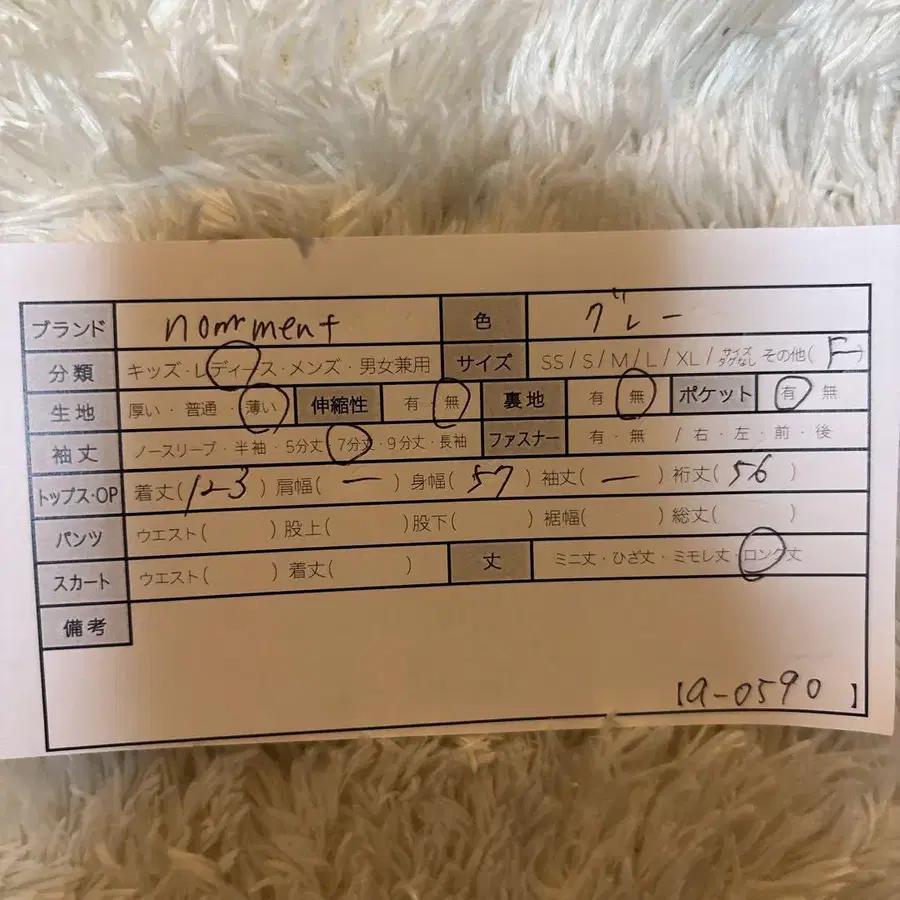 ブランド nomment 色 グレー
分類 キッズ・レディース・メンズ・男女兼用 サイズ SS / S / M / L / XL / サイズタグなし その他( F )
生地 厚い・普通・薄い 伸縮性 有・無 裏地 有・無 ポケット 有・無
袖丈 ノースリーブ・半袖・5分丈・7分丈・9分丈・長袖 ファスナー 有・無 / 右・左・前・後
トップス・OP 着丈( 123 ) 肩幅( ー ) 身幅( 57 ) 袖丈( ー ) 裄丈( 56 )
パンツ ウエスト( ) 股上( ) 股下( ) 裾幅( ) 総丈( )
スカート ウエスト( ) 着丈( ) 丈 ミニ丈・ひざ丈・ミモレ丈・ロング丈
備考
【a-0590 】